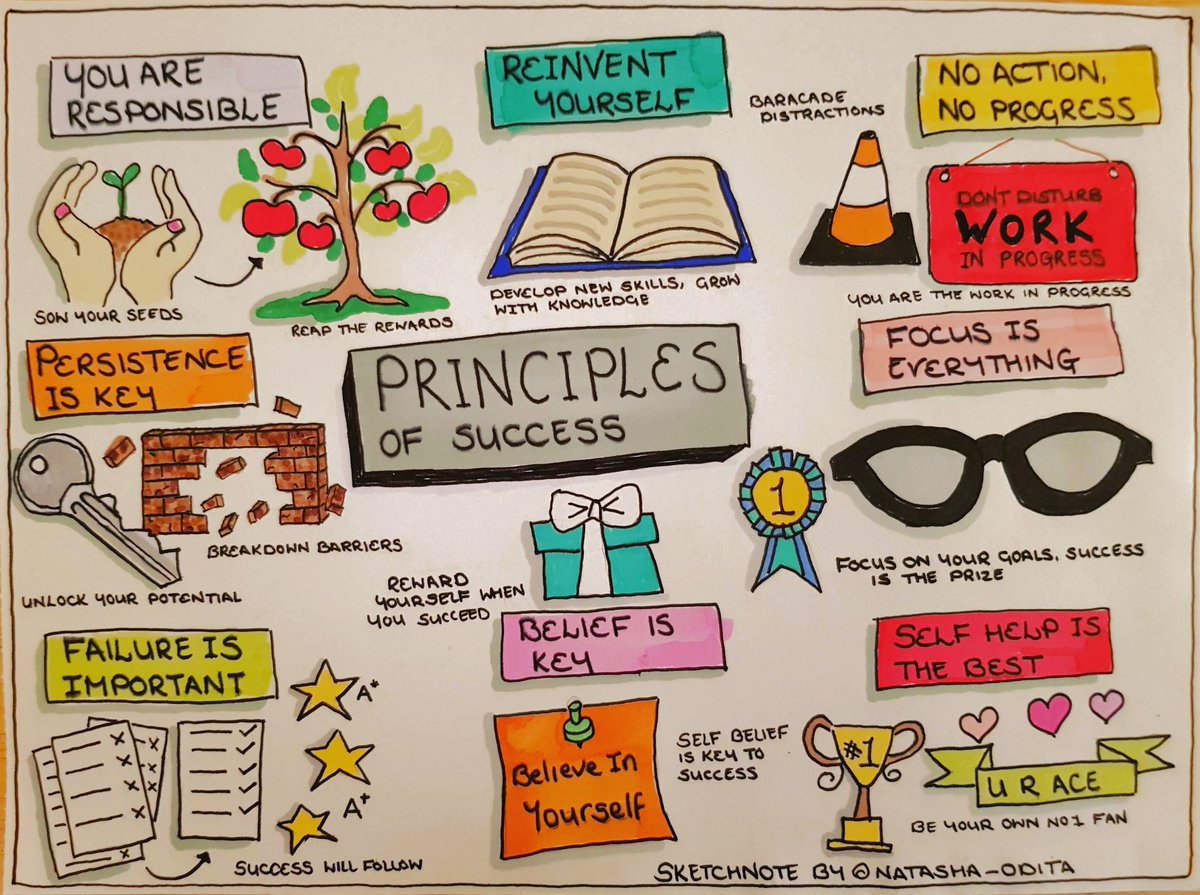 YOU ARE
RESPONSIBLE
SOW YOUR SEEDS
REAP THE REWARDS
REINVENT
YOURSELF
DEVELOP NEW SKILLS, GROW
WITH KNOWLEDGE
BARACADE
DISTRACTIONS
NO ACTION,
NO PROGRESS
DONT DISTURB
WORK
IN PROGRESS
YOU ARE THE WORK IN PROGRESS
PERSISTENCE
IS KEY
BREAKDOWN BARRIERS
UNLOCK YOUR POTENTIAL
PRINCIPLES
OF SUCCESS
REWARD
YOURSELF WHEN
YOU SUCCEED
FOCUS IS
EVERYTHING
1
FOCUS ON YOUR GOALS, SUCCESS
IS THE PRIZE
FAILURE IS
IMPORTANT
A*
A+
SUCCESS WILL FOLLOW
BELIEF IS
KEY
Believe In
Yourself
SELF BELIEF
IS KEY TO
SUCCESS
SELF HELP IS
THE BEST
#1
U R ACE
BE YOUR OWN NO1 FAN
SKETCHNOTE BY @NATASHA-ODITA